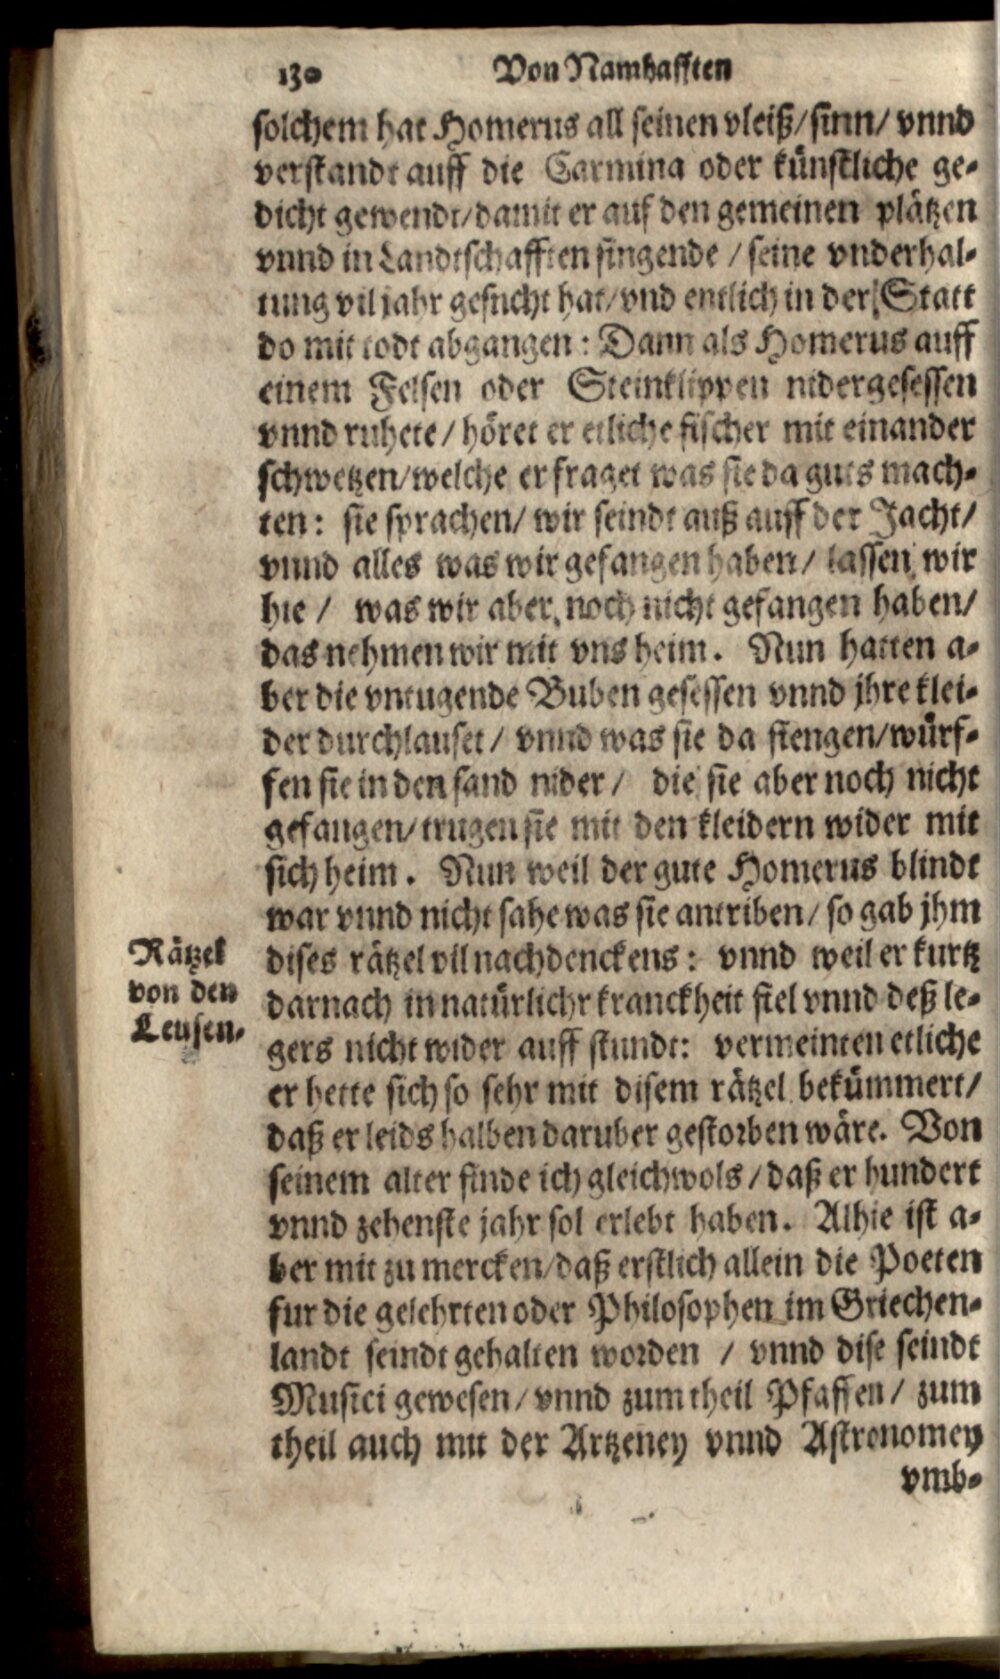 130 Von Namhafften
solchem hat Homerus all seinen vleiß/sinn/ vnnd
verstandt auff die Carmina oder künstliche ge-
dicht gewendt/damit er auf den gemeinen plätzen
vnnd in Landtschafften singende / seine vnderhal-
tung vil jahr gesucht hat/vnd entlich in der Statt
do mit todt abgangen: Dann als Homerus auff
einem Felsen oder Steinklippen nidergesessen
vnnd ruhete/ höret er etliche fischer mit einander
schwetzen/welche er fraget was sie da guts mach-
ten: sie sprachen/ wir seindt auß auff der Jacht/
vnnd alles was wir gefangen haben/ lassen wir
hie / was wir aber noch nicht gefangen haben/
das nehmen wir mit vns heim. Nun hatten a-
ber die vntugende Buben gesessen vnnd jhre klei-
der durchlauset/ vnnd was sie da fiengen/würf-
fen sie in den sand nider/ die sie aber noch nicht
gefangen/trugen sie mit den kleidern wider mit
sich heim. Nun weil der gute Homerus blindt
war vnnd nicht sahe was sie antriben/ so gab jhm
Rätzel
von den
Leusen.
dises rätzel vil nachdenckens: vnnd weil er kurtz
darnach in natürlichr kranckheit fiel vnnd deß le-
gers nicht wider auff stundt: vermeinten etliche
er hette sich so sehr mit disem rätzel bekümmert/
daß er leids halben daruber gestorben wäre. Von
seinem alter finde ich gleichwols/ daß er hundert
vnnd zehenste jahr sol erlebt haben. Alhie ist a-
ber mit zu mercken/daß erstlich allein die Poeten
fur die gelehrten oder Philosophen im Griechen-
landt seindt gehalten worden / vnnd dise seindt
Musici gewesen/ vnnd zum theil Pfaffen/ zum
theil auch mit der Artzeney vnnd Astronomey
vmb-